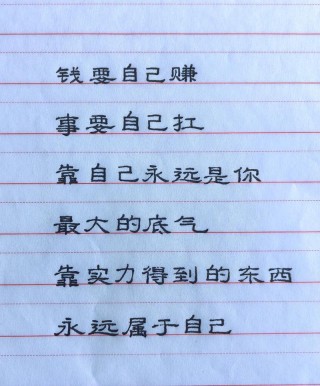 钱要自己赚
事要自己扛
靠自己永远是你
最大的底气
靠实力得到的东西
永远属于自己